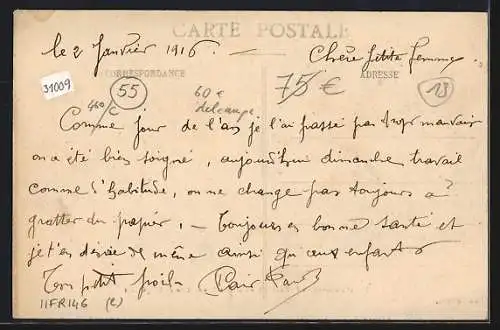 CARTE POSTALE
le 2 Janvier 1916 — Chère petite femme
CORRESPONDANCE
ADRESSE
31009
55
60 €
75 €
13
Comme jour de l'an je l'ai passé pas trop mauvais
on a été bien soigné, aujourd'hui dimanche travail
comme d'habitude, on ne change pas toujours à
gratter du papier, — Toujours en bonne santé et
je t'en désire de même ainsi qu'aux enfants
Ton petit poilu
11FR146 (2)